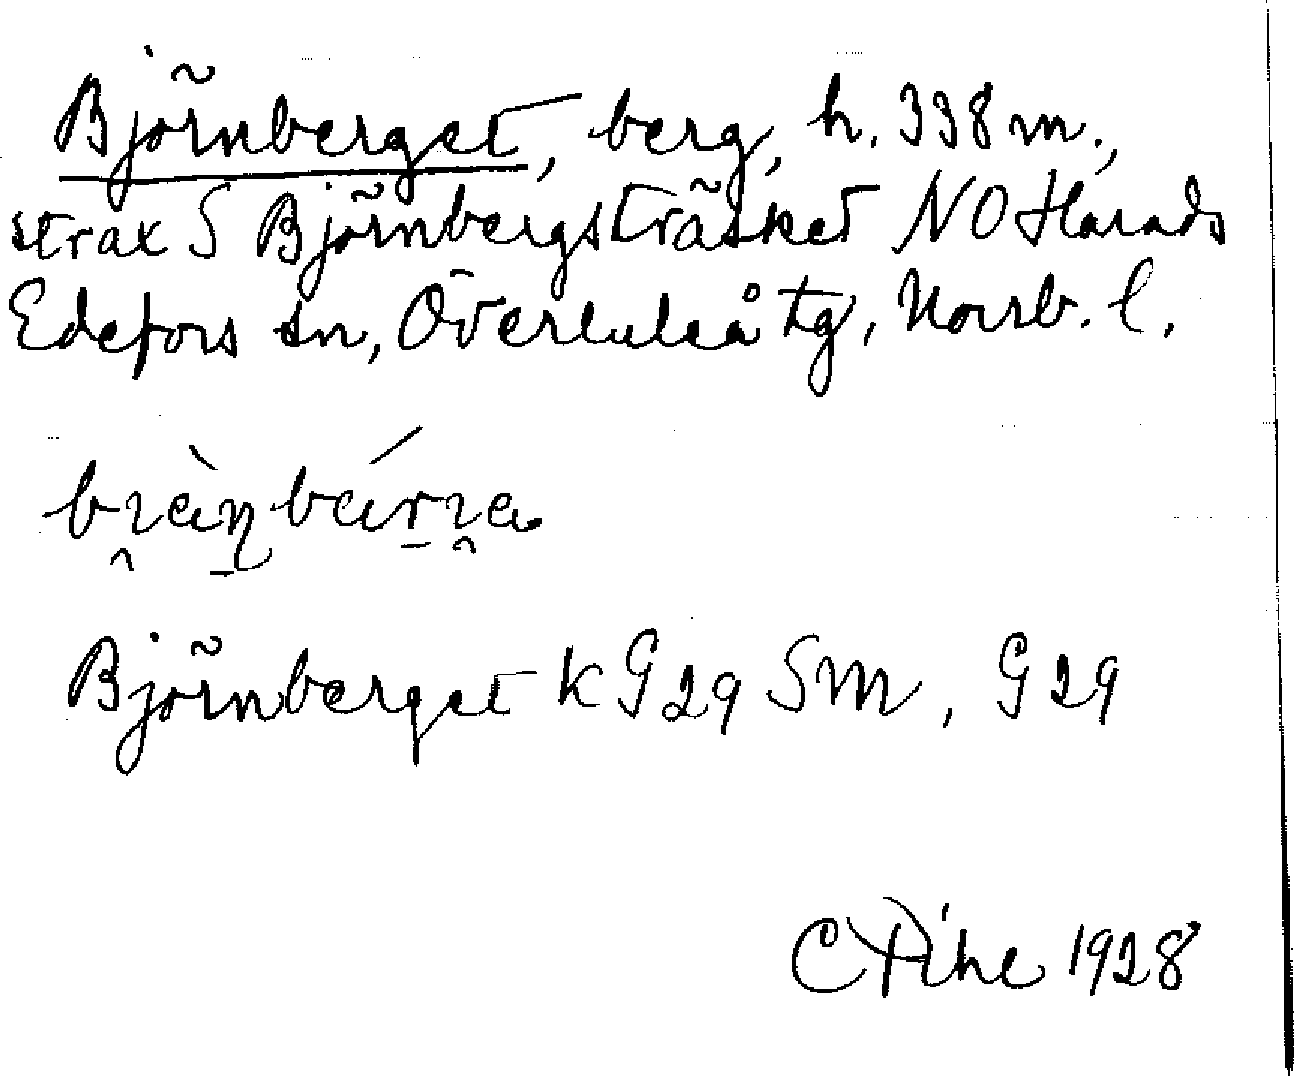 Björnberget, berg, h. 338 m.,
strax S Björnbergsträsket NO Harads
Edefors sn, Överluleå tg, Norrb. l.
Björnberget k G29 SM, G29
C Pihl 1928